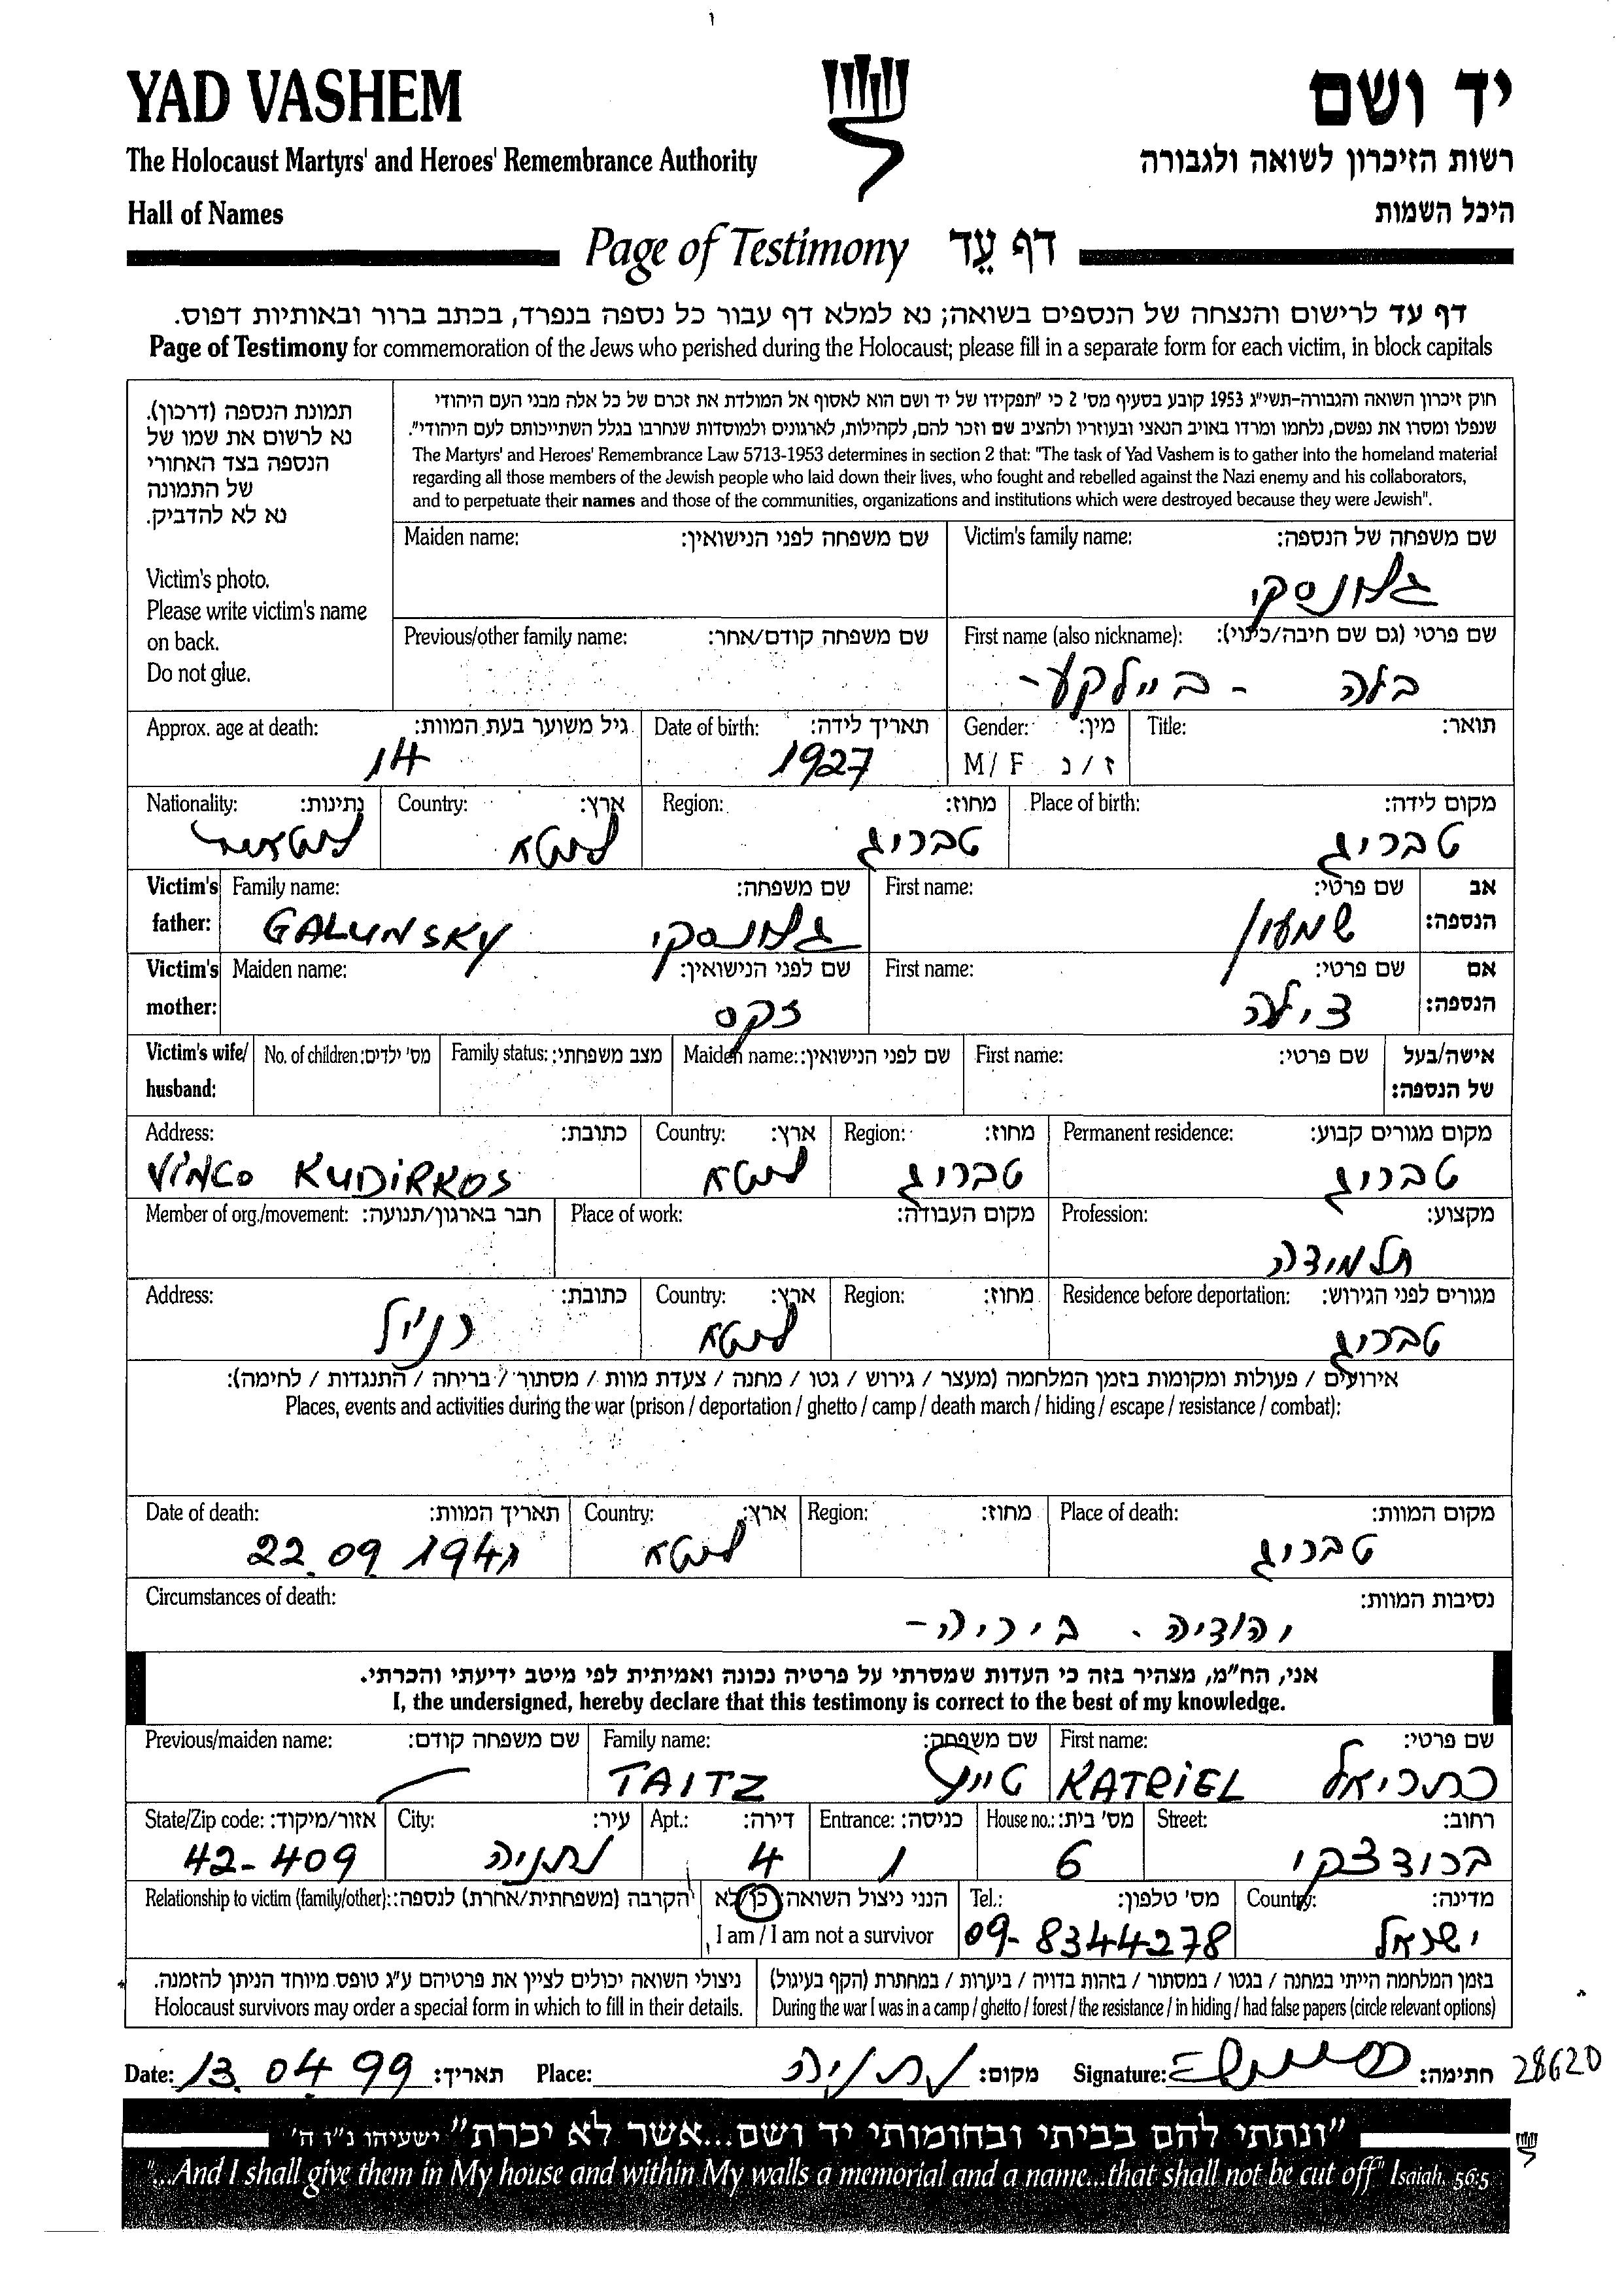 YAD VASHEM
יד ושם
The Holocaust Martyrs' and Heroes' Remembrance Authority
רשות הזיכרון לשואה ולגבורה
Hall of Names
היכל השמות
Page of Testimony דף עֵד
דף עד לרישום והנצחה של הנספים בשואה; נא למלא דף עבור כל נספה בנפרד, בכתב ברור ובאותיות דפוס.
Page of Testimony for commemoration of the Jews who perished during the Holocaust; please fill in a separate form for each victim, in block capitals
תמונת הנספה (דרכון).
נא לרשום את שמו של
הנספה בצד האחורי
של התמונה
נא לא להדביק.
Victim's photo.
Please write victim's name
on back.
Do not glue.
חוק זיכרון השואה והגבורה-תשי"ג 1953 קובע בסעיף מס' 2 כי "תפקידו של יד ושם הוא לאסוף אל המולדת את זכרם של כל אלה מבני העם היהודי
שנפלו ומסרו את נפשם, נלחמו ומרדו באויב הנאצי ובעוזריו ולהציב שם וזכר להם, לקהילות, לארגונים ולמוסדות שנחרבו בגלל השתייכותם לעם היהודי".
The Martyrs' and Heroes' Remembrance Law 5713-1953 determines in section 2 that: "The task of Yad Vashem is to gather into the homeland material
regarding all those members of the Jewish people who laid down their lives, who fought and rebelled against the Nazi enemy and his collaborators,
and to perpetuate their names and those of the communities, organizations and institutions which were destroyed because they were Jewish".
Victim's family name: שם משפחה של הנספה:
גלונסקי
Maiden name: שם משפחה לפני הנישואין:
First name (also nickname): שם פרטי (גם שם חיבה/כינוי):
בלה - ביילקע-
Previous/other family name: שם משפחה קודם/אחר:
Title: תואר:
Gender: מין:
M / F ז / נ
Date of birth: תאריך לידה:
1927
Approx. age at death: גיל משוער בעת המוות:
14
Place of birth: מקום לידה:
טבריג
Region: מחוז:
טבריג
Country: ארץ:
ליטא
Nationality: נתינות:
ליטאית
אב הנספה:
First name: שם פרטי:
שמעון
Victim's father: Family name: שם משפחה:
GALUNSKY גלונסקי
אם הנספה:
First name: שם פרטי:
צילה
Victim's mother: Maiden name: שם לפני הנישואין:
זקס
אישה/בעל של הנספה:
First name: שם פרטי:
Maiden name: שם לפני הנישואין:
Family status: מצב משפחתי:
No. of children: מס' ילדים:
Victim's wife/ husband:
Permanent residence: מקום מגורים קבוע:
טבריג
Region: מחוז:
טבריג
Country: ארץ:
ליטא
Address: כתובת:
VINCO KUDIRKOS
Profession: מקצוע:
תלמידה
Place of work: מקום העבודה:
Member of org./movement: חבר בארגון/תנועה:
Residence before deportation: מגורים לפני הגירוש:
טבריג
Region: מחוז:
Country: ארץ:
ליטא
Address: כתובת:
כנ"ל
אירועים / פעולות ומקומות בזמן המלחמה (מעצר / גירוש / גטו / מחנה / צעדת מוות / מסתור / בריחה / התנגדות / לחימה):
Places, events and activities during the war (prison / deportation / ghetto / camp / death march / hiding / escape / resistance / combat):
Place of death: מקום המוות:
טבריג
Region: מחוז:
Country: ארץ:
ליטא
Date of death: תאריך המוות:
22.09.1941
Circumstances of death: נסיבות המוות:
יהודיה - ביריה-
אני, הח"מ, מצהיר בזה כי העדות שמסרתי על פרטיה נכונה ואמיתית לפי מיטב ידיעתי והכרתי.
I, the undersigned, hereby declare that this testimony is correct to the best of my knowledge.
First name: שם פרטי:
KATRIEL כתריאל
Family name: שם משפחה:
TAITZ טייץ
Previous/maiden name: שם משפחה קודם:
Street: רחוב:
ברודצקי
House no.: מס' בית:
6
Entrance: כניסה:
1
Apt.: דירה:
4
City: עיר:
נתניה
State/Zip code: אזור/מיקוד:
42-409
Country: מדינה:
ישראל
Tel.: מס' טלפון:
09-8344278
הנני ניצול השואה: כן/לא
I am / I am not a survivor
Relationship to victim (family/other): הקרבה (משפחתית/אחרת) לנספה:
בזמן המלחמה הייתי במחנה / בגטו / במסתור / בזהות בדויה / ביערות / במחתרת (הקף בעיגול)
During the war I was in a camp / ghetto / forest / the resistance / in hiding / had false papers (circle relevant options)
ניצולי השואה יכולים לציין את פרטיהם ע"ג טופס מיוחד הניתן להזמנה.
Holocaust survivors may order a special form in which to fill in their details.
Date: 13.04.99 תאריך: Place: נתניה מקום: Signature: חתימה: 28620
"ונתתי להם בביתי ובחומותי יד ושם...אשר לא יכרת" ישעיהו נ"ו ה'
"...And I shall give them in My house and within My walls a memorial and a name...that shall not be cut off" Isaiah, 56:5